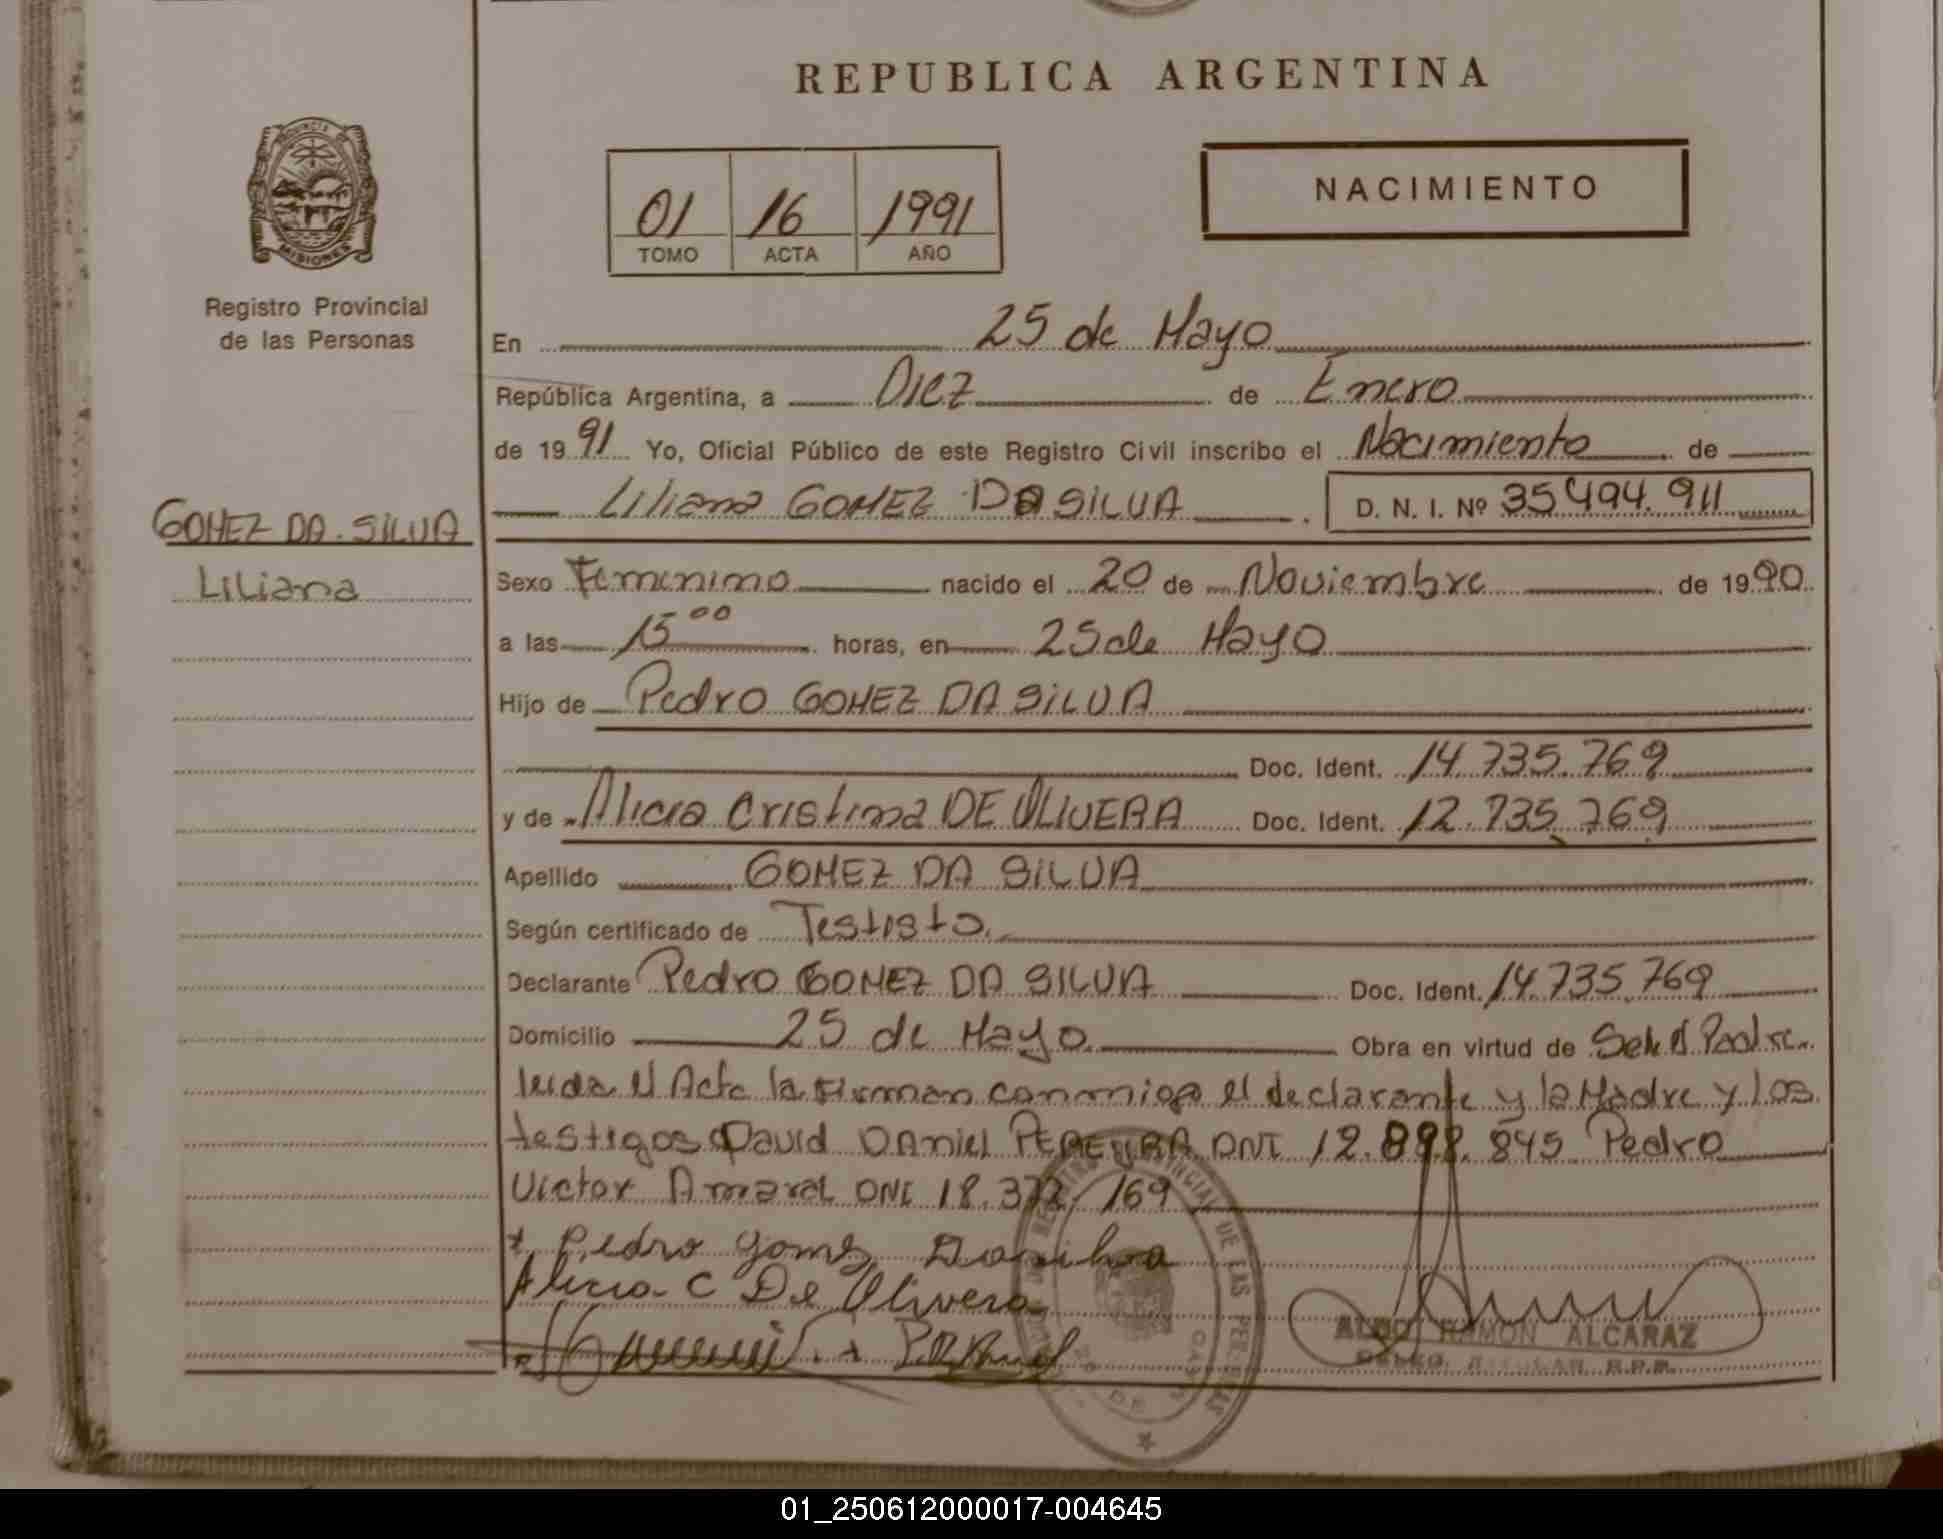 REPUBLICA ARGENTINA
PROVINCIA DE
MISIONES
Registro Provincial
de las Personas
GOMEZ DA. SILVA
Liliana
01 16 1991
TOMO ACTA AÑO
NACIMIENTO
En 25 de Mayo
República Argentina, a Diez de Enero
de 19 91 Yo, Oficial Público de este Registro Civil inscribo el Nacimiento de
Liliana GOMEZ DA SILVA. D. N. I. Nº 35494.911
Sexo Femenino nacido el 20 de Noviembre de 1990
a las 15 00 horas, en 25 de Mayo
Hijo de Pedro GOMEZ DA SILVA
Doc. Ident. 14.735.769
y de Alicia Cristina DE OLIVERA Doc. Ident. 12.735.769
Apellido GOMEZ DA SILVA
Según certificado de Testigto.
Declarante Pedro GOMEZ DA SILVA Doc. Ident. 14.735.769
Domicilio 25 de Mayo. Obra en virtud de Ser el Padre.
leida el Acta la Firman conmigo el declarante y la Madre y los
testigos David DANiel PEREYRA DNI 12.898.845 Pedro
Victor Amaral DNI 18.372.169
Pedro gomez Dasilva
Alicia C De Olivera
REGISTRO PROVINCIAL DE LAS PERSONAS
25 DE MAYO
ALDO RAMON ALCARAZ
DELEG. TITULAR R.P.P.
01_250612000017-004645